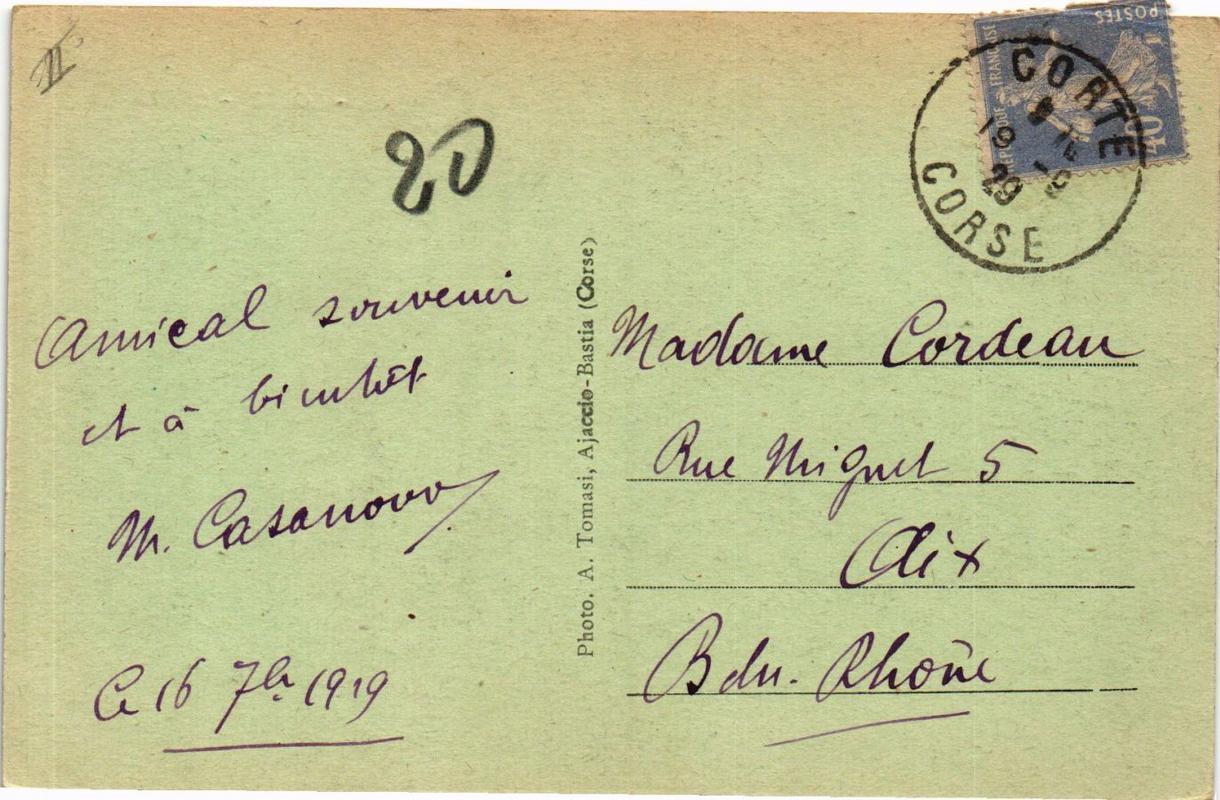 II
20
Amical souvenir
et à bientôt
M. Casanova
Ce 16 7bre 1919
Photo. A. Tomasi, Ajaccio-Bastia (Corse)
POSTES
RÉPUBLIQUE FRANÇAISE
40
CORTE
19 -9
29
CORSE
Madame Cordeau
Rue Mignet 5
Aix
Bdu-Rhône